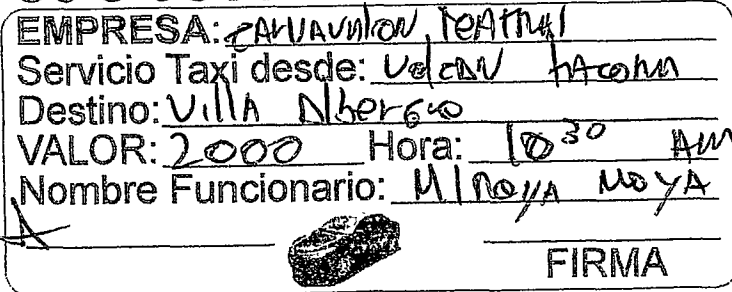 EMPRESA:
Servicio Taxi desde: Volcan tacora
Destino: Villa Albergo
VALOR: 2000 Hora: 10 30 AM
Nombre Funcionario: Miroya Moya
FIRMA